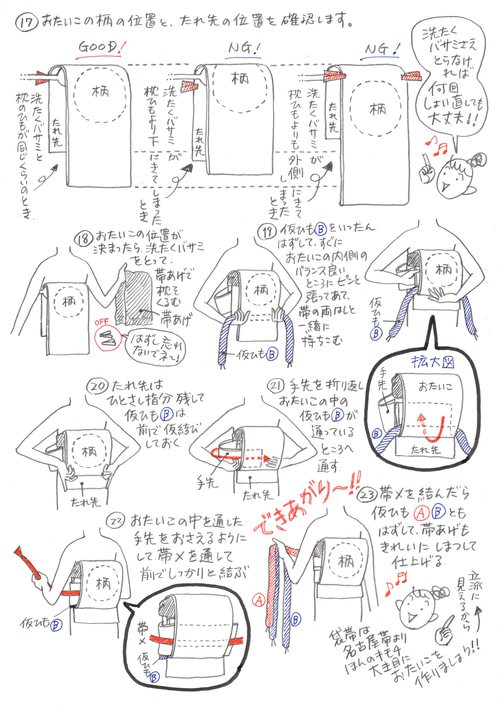 ⑰おたいこの柄の位置と、たれ先の位置を確認します。
GOOD!
NG!
NG!
柄
たれ先
洗たくバサミと
枕のひもが同じくらいのとき
柄
たれ先
洗たくバサミが
枕ひもより下にきてしまった
とき
柄
たれ先
洗たくバサミが
枕ひもよりも外側にきて
しまった
とき
洗たく
バサミさえ
とらなけ
れば
何回
しょい直しても
大丈夫!!
⑱おたいこの位置が
決まったら、洗たくバサミ
をとって、
帯あげで
枕を
くるむ
帯あげ
柄
OFF
はずし忘れ
ないでネ〜!
⑲仮ひもⒷといったん
はずして、すぐに
おたいこの内側の
バランス良い
ところにピンと
張ってあて、
帯の両はしと
一緒に
持ちこむ
柄
仮ひもⒷ
柄
仮ひも
Ⓑ
拡大図
手先
おたいこ
Ⓑ
たれ先
⑳たれ先は
ひとさし指分残して
仮ひもⒷは
前で仮結びして
おく
柄
たれ先
㉑手先を折り返し
おたいこの中の
仮ひもⒷが
通っている
ところへ
通す
手先
たれ先
できあがり〜!!
㉒おたいこの中を通した
手先をおさえるように
して帯〆を通して
前でしっかりと結ぶ
柄
仮ひもⒷ
帯〆
仮ひもⒷ
柄
Ⓐ
Ⓑ
㉓帯〆を結んだら
仮ひもⒶⒷとも
はずして、帯あげも
きれいにしまつして
仕上げる。
立派に
見えるから
袋帯は
名古屋帯より
ほんのキモチ
大き目に
おたいこを
作りましょう!!